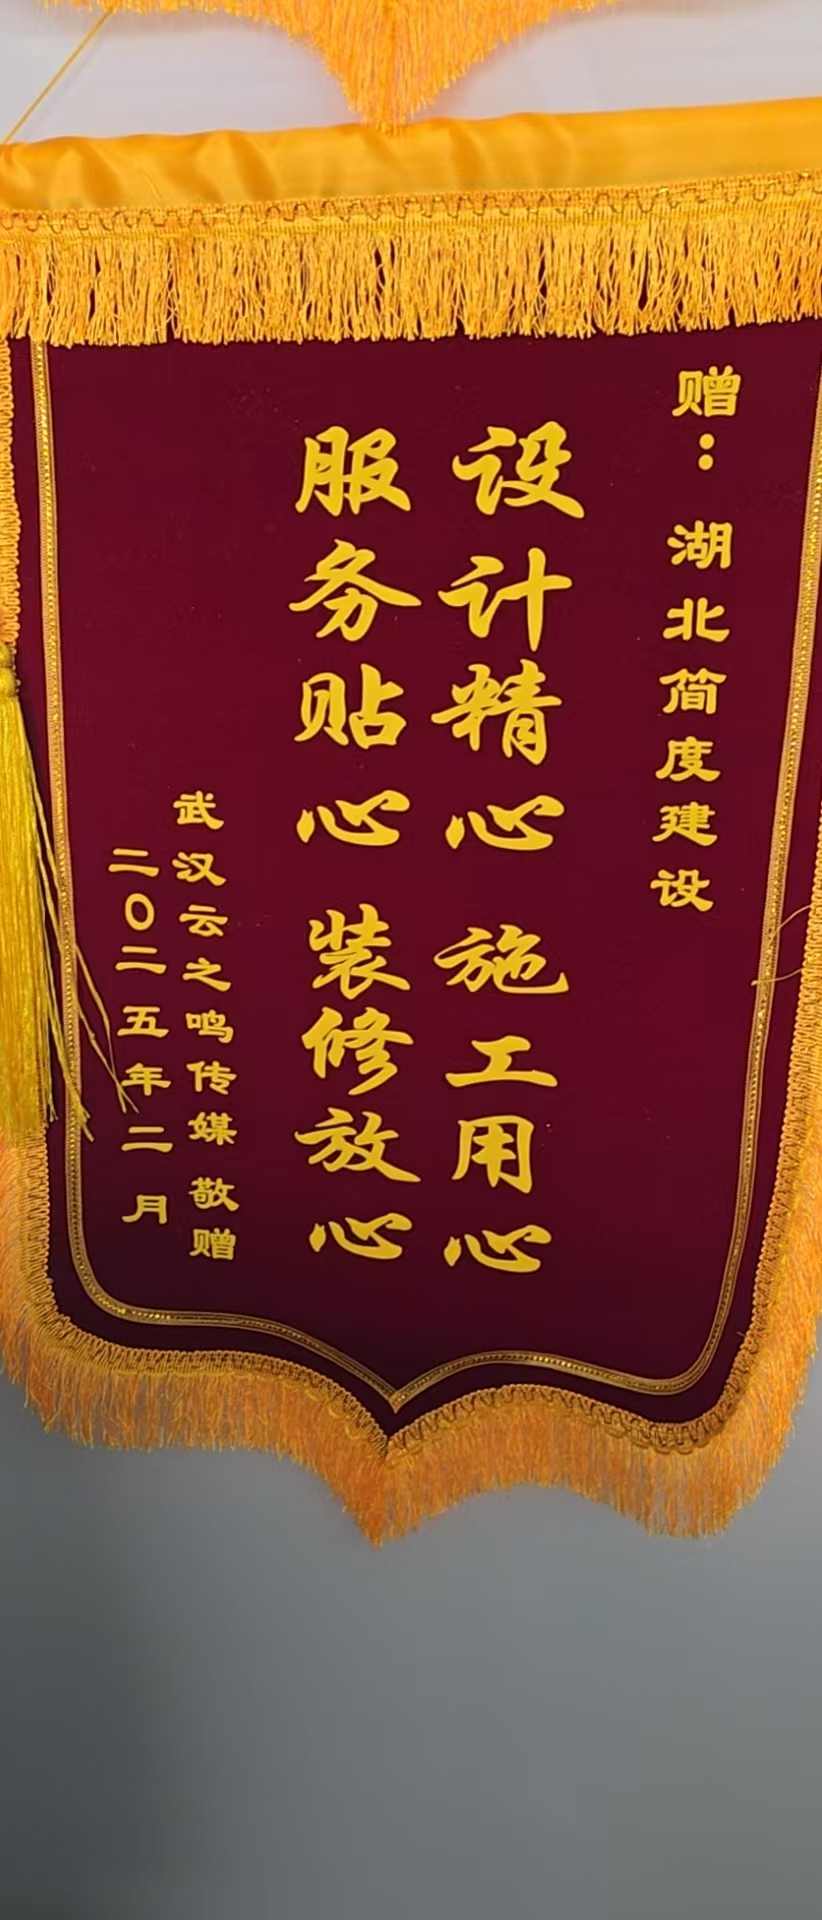 赠：湖北简度建设
设计精心 施工用心
服务贴心 装修放心
武汉云之鸣传媒 敬赠
二〇二五年二月